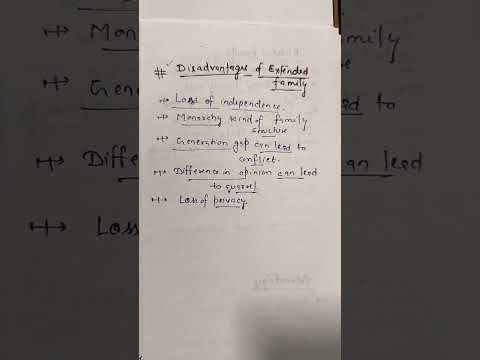 # Disadvantages of Extended
family
→ Loss of independence.
→ Monarchy kind of family
structure
→ Generation gap can lead to
conflict.
→ Difference in opinion can lead
to quarrel
→ Loss of privacy